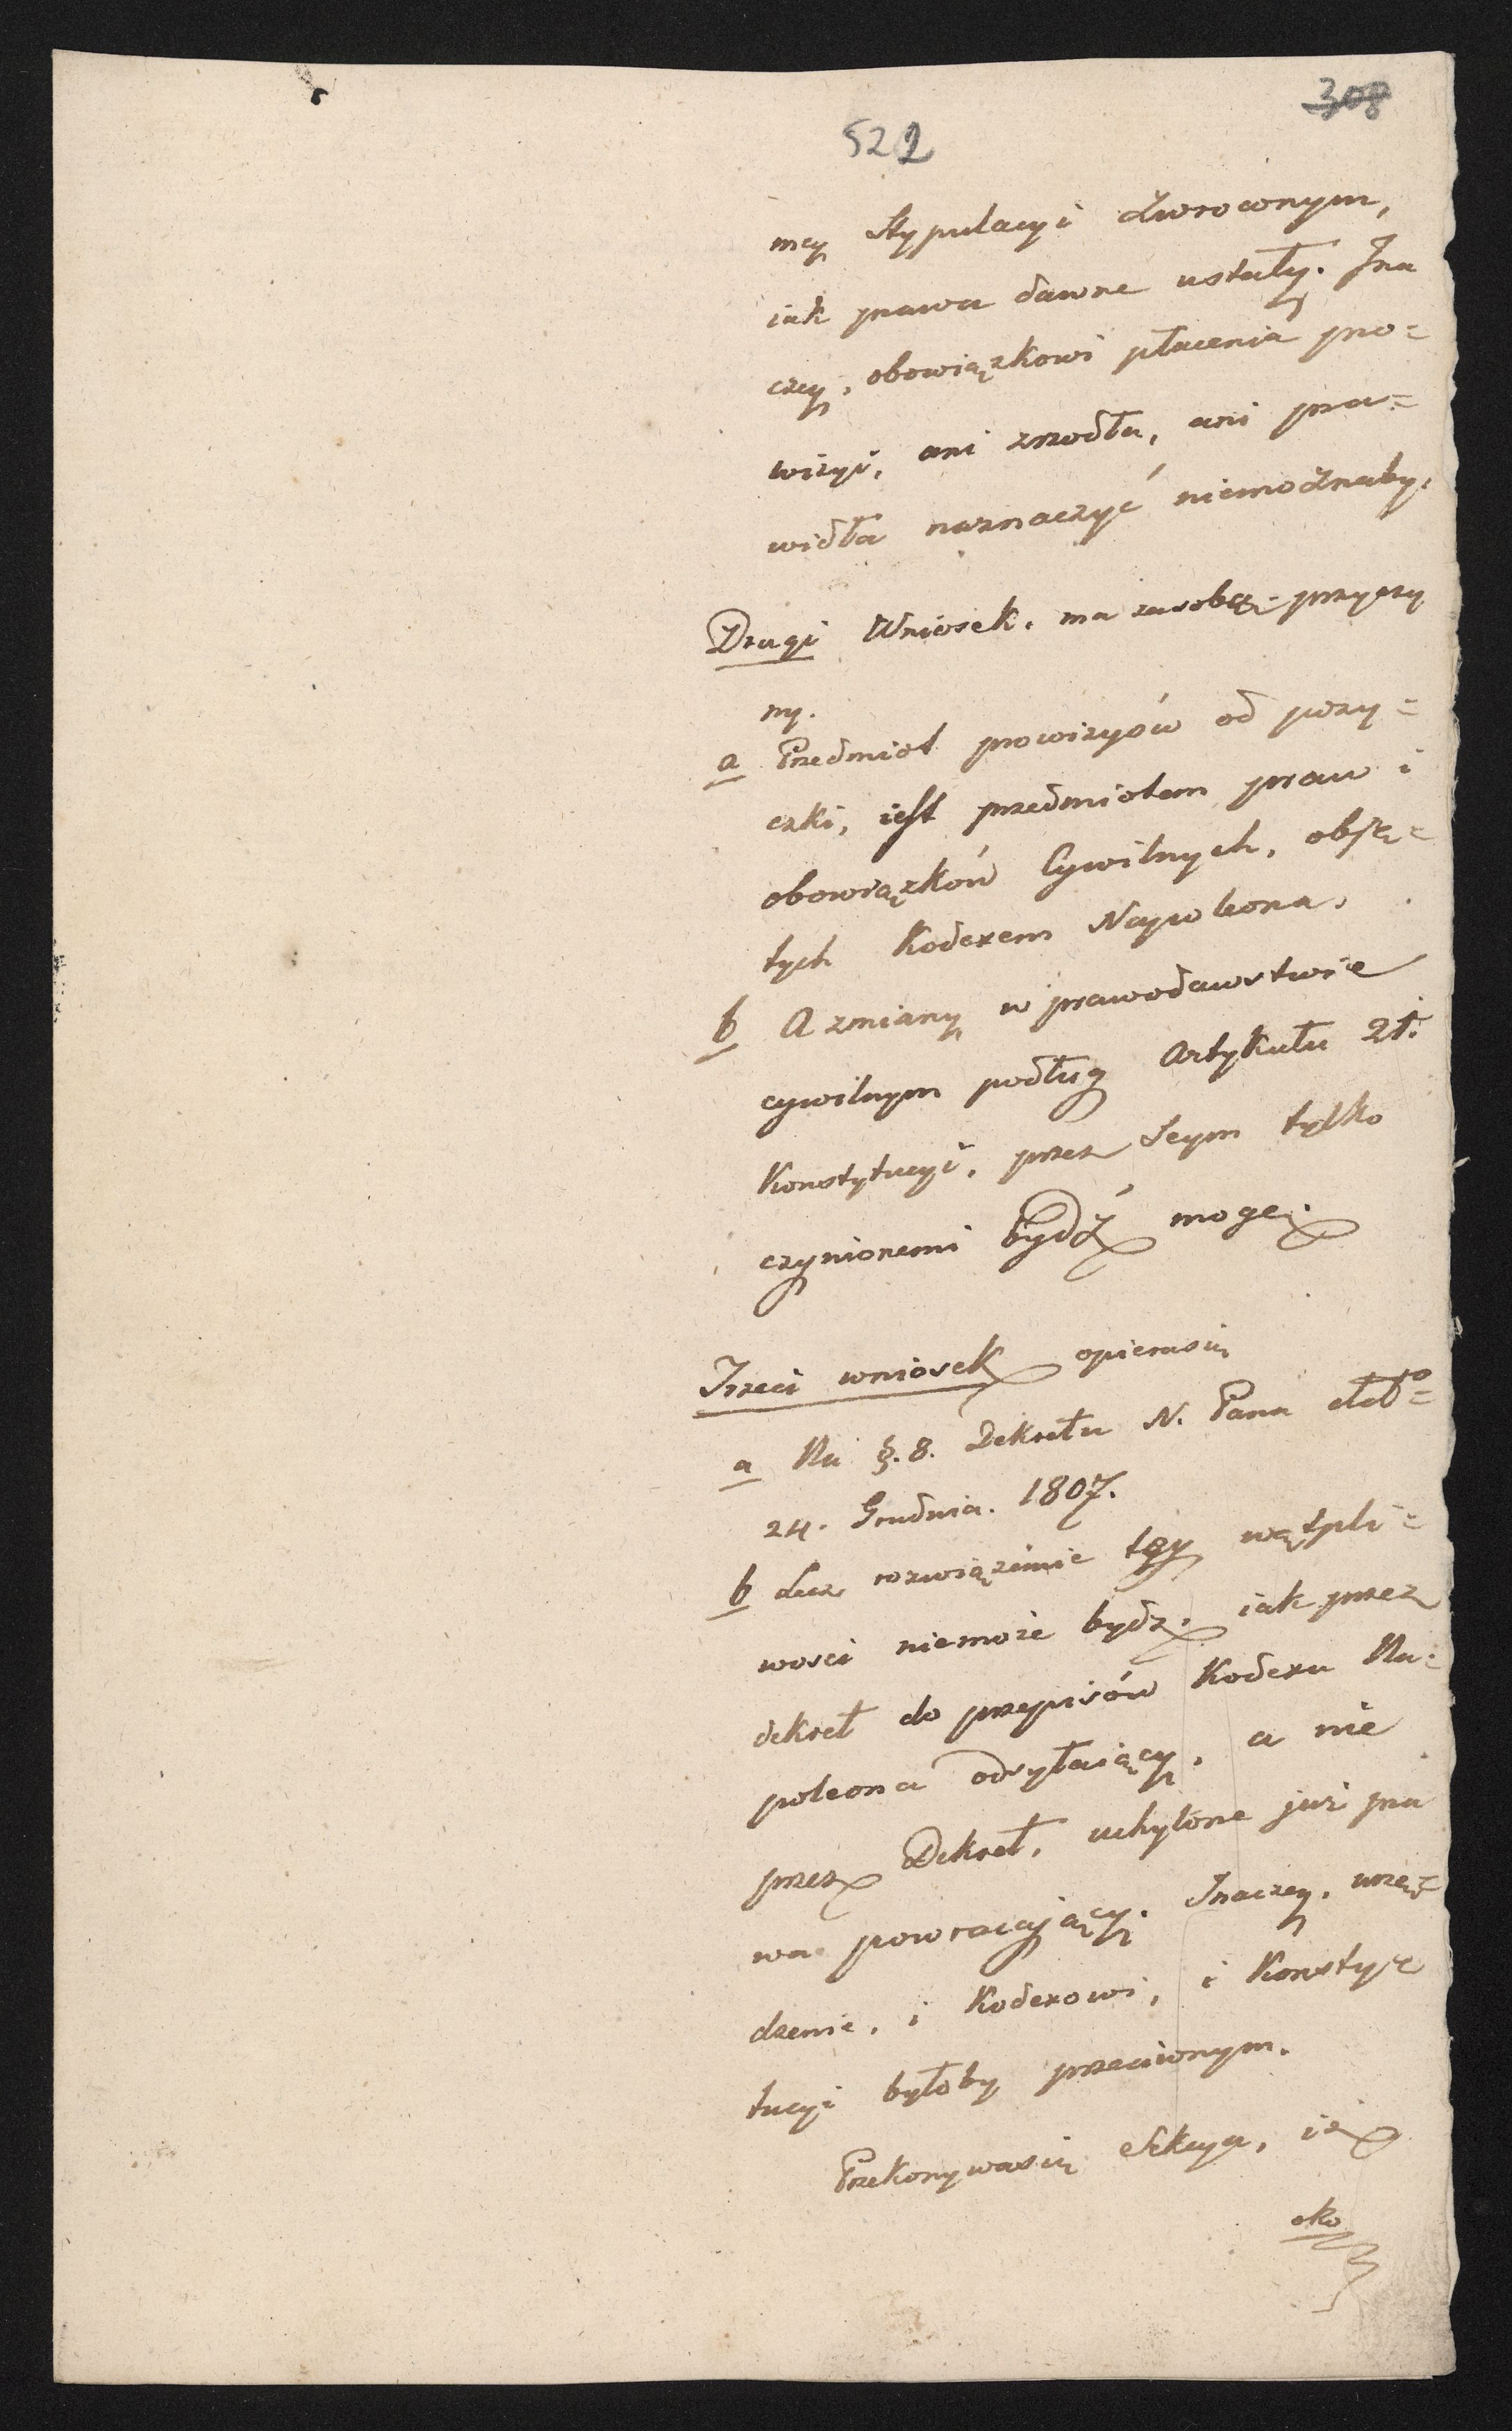 308
522
mey Stypulacyi Zwroconym,
iak prawa dawne ustały. Ina
czey, obowiązkowi płacenia pro=
wizyi, ani zrzodła, ani pra=
widła naznaczyć niemożnaby.
Drugi Wniosek, ma za sobą: przyczy
ny.
a Przedmiot prowizyów od pozy=
czki, iest przedmiotem praw i
obowiązków Cywilnych, obję=
tych Kodexem Napoleona.
b A zmiany w prawodawstwie
cywilnym podług Artykułu 21.
Konstytucyi, przez Seym tylko
czynionemi bydź mogą.
Trzeci wniosek opierasię
a Na §. 8. Dekretu N. Pana ddto=
24. Grudnia. 1807.
b Lecz rozwiązanie tey wątpli=
wosci niemoże bydz, iak przez
dekret do przepisów Kodexu Na=
poleona odsyłaiący, a nie
przez Dekret, uchylone już pra
wa powracający. Inaczey, urzą=
dzenie, i Kodexowi, i Konsty=
tucyi byłoby przeciwnym.
Przekonywasię Sekcya, iż
oko